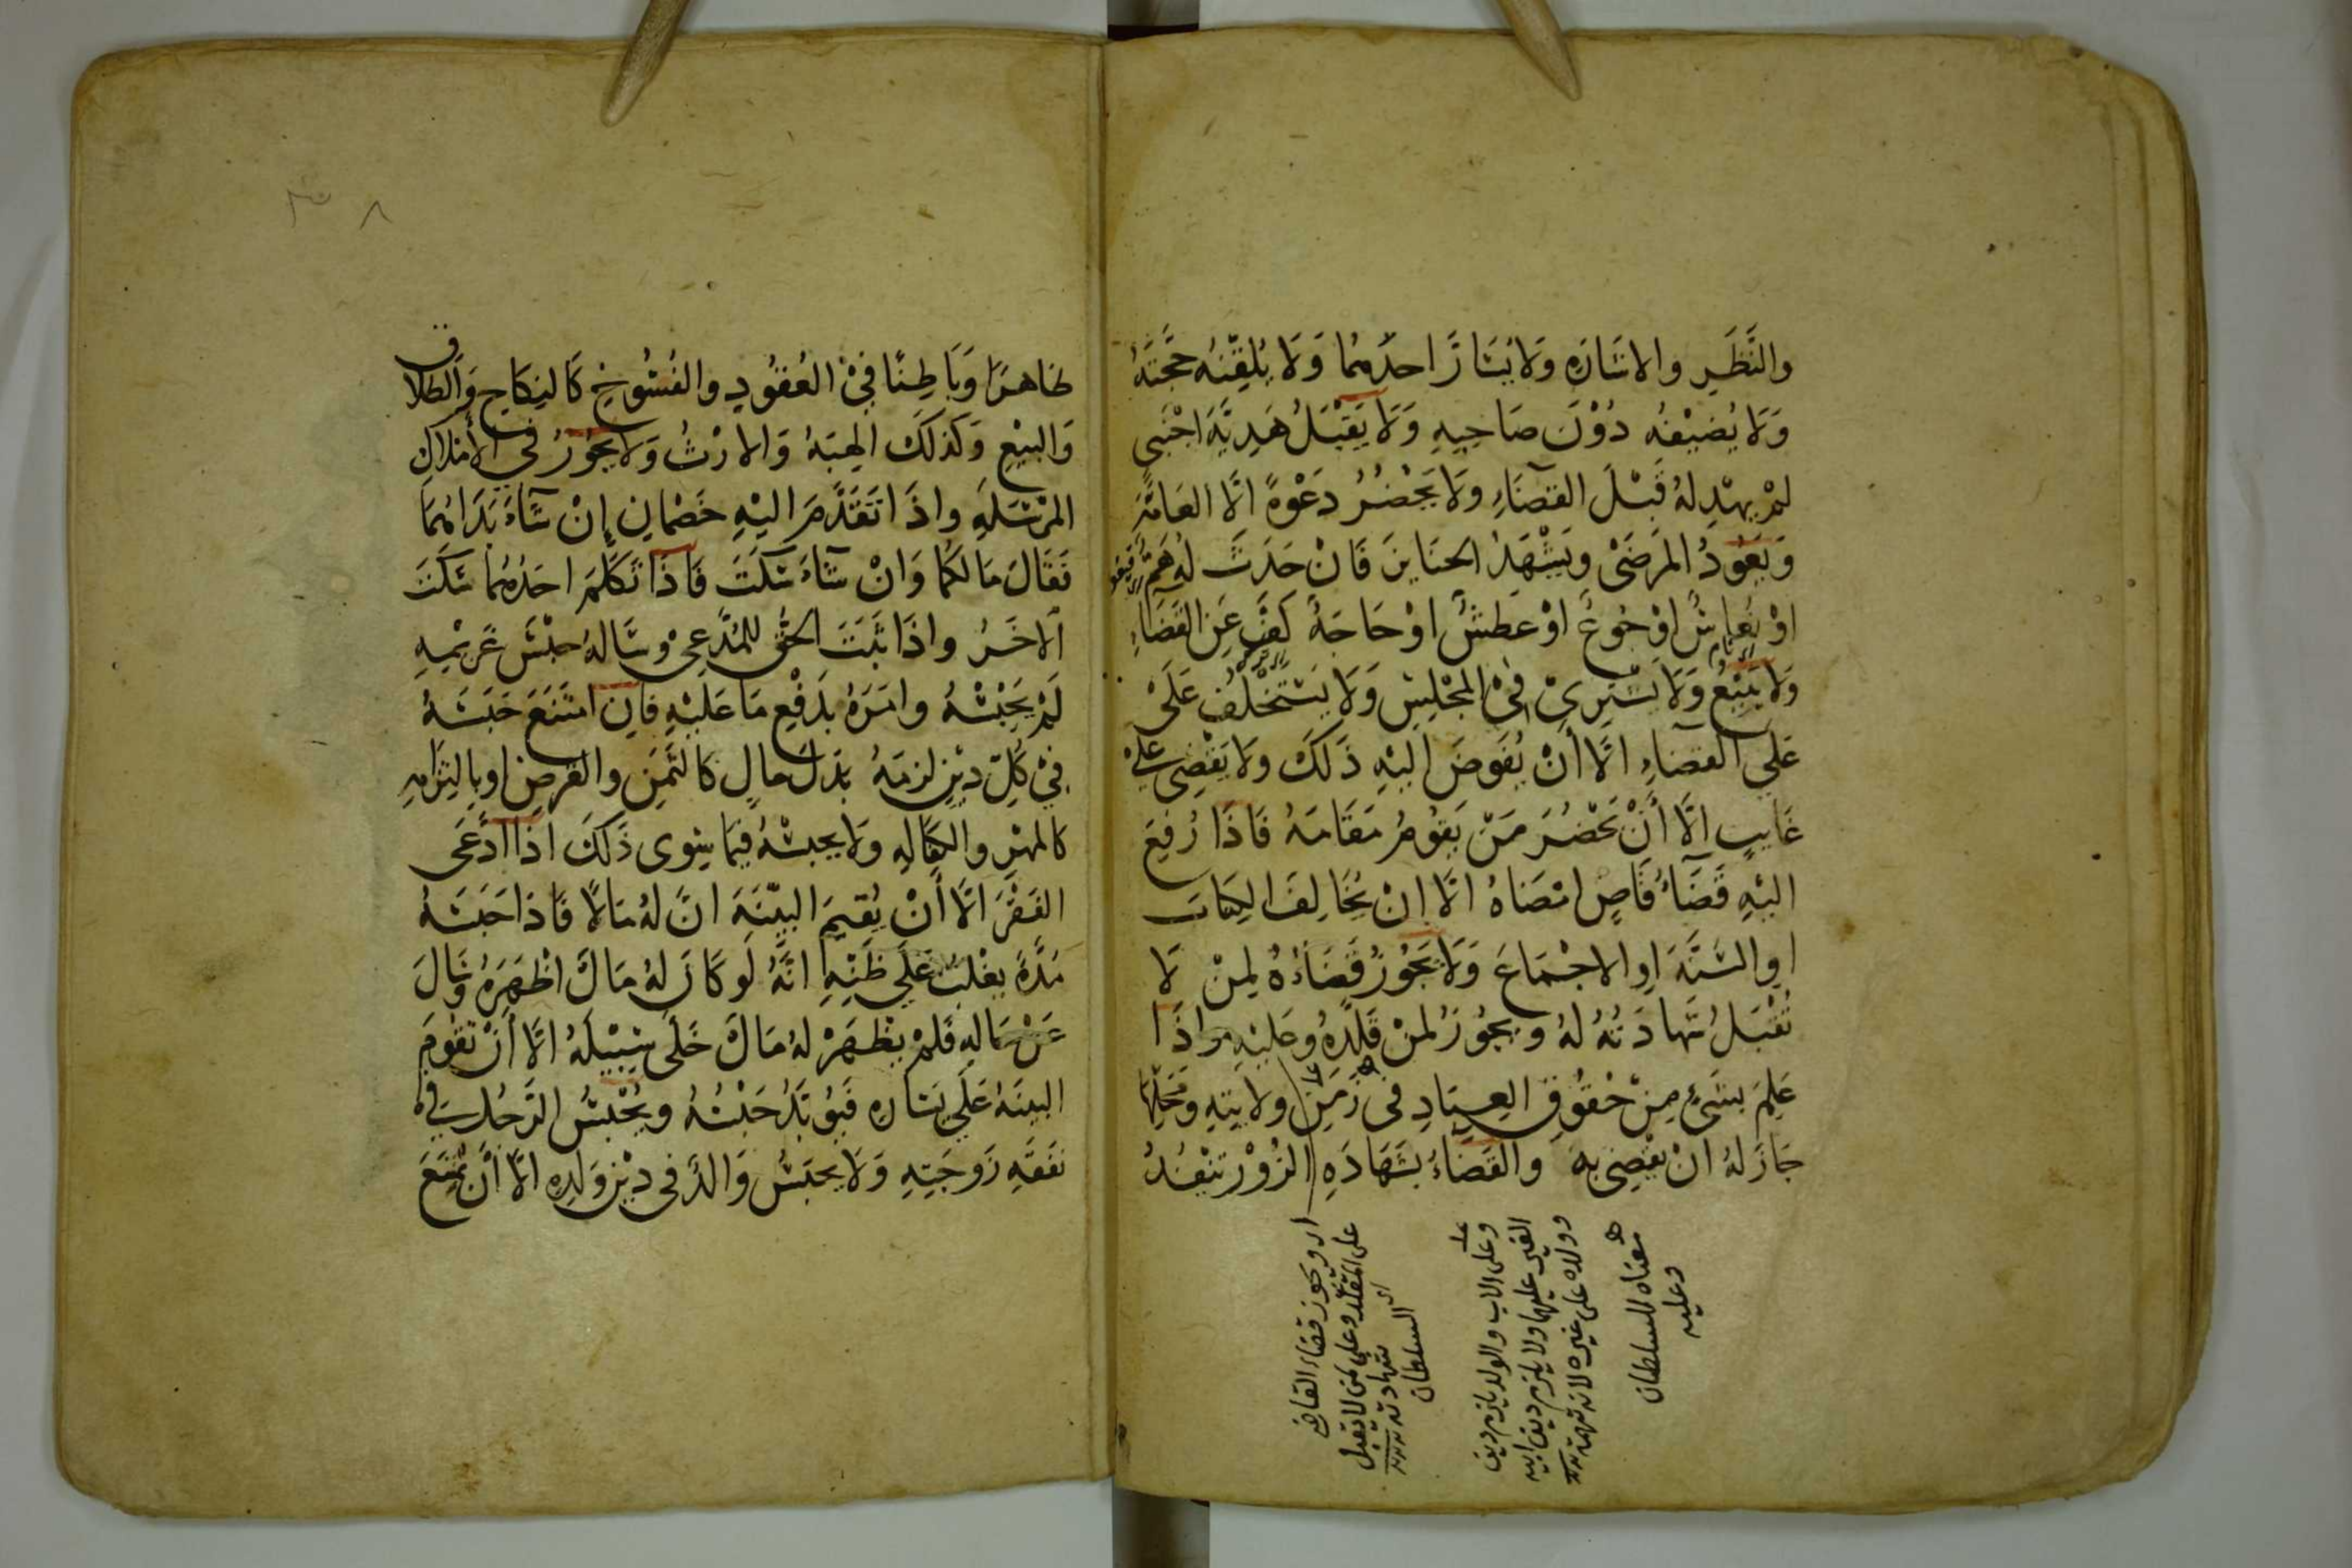 والنَّظَرِ والاشَارَهِ وَلَا يُسَارَّ احدَهُمَا وَلَا يُلَقِّنُه حجَّتَهُ
وَلَا يُضيْفُه دُوْنَ صَاحِبِهِ وَلَا يَقْبَلُ هَدِيَّةَ اجْنَبي
لمْ يهْدِ لهُ قَبْلَ القَضَاءِ ولَا يَحْضُرُ دَعْوةً الَّا العَامَّهَ
وَيَعُوْدُ المَرضَىْ ويَشْهَدُ الجنَايزَ فَانْ حَدَثَ لهُ هَمٌّ
اوْ نُعاسٌ اوْ جُوعٌ اوْ عَطشٌ اوْ حَاجَةٌ كَفَّ عَنِ القَضَاءِ
ولَا يَبيْعُ وَلَا يَشْتَرِيْ فِيْ المَجْلِسِ وَلَا يَسْتَخْلفُ عَلَىْ
عَلَي القضَاءِ الَّا أَنْ يُفَوضَ اليْهِ ذَلكَ ولَا يَقْضِى على
غَايبٍ الَّا أَنْ يَحْضُرَ مَنْ يَقوُمُ مَقَامَهُ فَاذَا رُفِعَ
اليْهِ قَضَاءُ قَاضٍ امْضَاهُ الَّا انْ يُخَالِفَ الكِتابَ
اوِ السُنَّهَ اوِ الاجْمَاعَ وَلَا يَجُوْزُ قَضَاءُهُ لِمنْ لَا
تُقْبَلُ شَهادَتُهُ لهُ ويجُوْزُ لمنْ قَلّدَهُ وعَليْهِ واذَا
عَلِمَ بشَىْءٍ مِنْ حُقُوْقِ العِبَادِ في زَمَنِ ولايتِهِ ومَحَلّهَا
جَازَ لهُ انْ يقْضِىَ بهِ والقَضَاءُ بشَهَادَهِ الزُوْرِ يَنْفُذُ
اى ويجوز قضاء القاضى
على المقلد وعلى من لا تقبل
شهادته
اى السلطان
وعلى الاب والولد يلزم دين
الغير عليهما ولا يلزم دين ابيه
وولاده على غيره لانه تهمة
معناه للسلطان
وعليه
ظاهرًا وَبَاطِنًا فِيْ العُقُوْدِ والفُسُوْخِ كَالنِكَاحِ وَالطلَاق
وَالبيْعِ وَكَذلكَ الهِبَهُ وَالارْثُ وَلَا يَجُوْزُ في الأمْلاكِ
المرْسَلَهِ واذَا تَقَدَّمَ اليْهِ خَصْمانِ إنْ شَاءَ بَدَاهُمَا
فَقَالَ مَا لكُمَا وَانْ شَاءَ سَكَتَ فَاذَا تَكَلَّمَ احَدُهُمَا سَكَتَ
الاخَرُ واذَا ثَبَتَ الحقُّ للمُدَّعِىْ وسَالهُ حبْسَ غَريْمِهِ
لَمْ يَحْبِسْهُ وامَرَهُ بدَفْعِ مَا عَلَيْهِ فَانِ امْتَنَعَ حَبَسَهُ
فِيْ كُلِّ ديْنٍ لزمَهُ بدَلَ مالٍ كالثَمَنِ والقَرضِ اوبالتِزَامِهِ
كالمهْرِ والكَفَالهِ ولَا يحبِسُهُ فيْمَا سِوى ذَلكَ اذَا ادَّعَى
الفَقْرَ الَّا أَنْ يُقيمَ البيّنَهَ انَّ لهُ مَالًا فَاذَا حَبَسَهُ
مدَّةً يغْلبُ عَلَي ظَنّهِ انَّهُ لَو كَانَ لهُ مَالٌ اظْهَرَهُ وسَالَ
عَنْ مَالهِ فَلمْ يظْهَرْ لهُ مَالٌ خَلَّى سَبيْلَهُ الَّا أَنْ تقوْمَ
البينَهُ عَلَي يَسَارِهِ فيُؤبّدُ حَبْسُهُ ويُحْبَسُ الرَجُلُ في
نفَقهِ زَوجَتِهِ وَلَا يحبَسُ وَالدٌ في ديْنِ وَلدِهِ الَّا أَنْ يَمْتَنِعَ